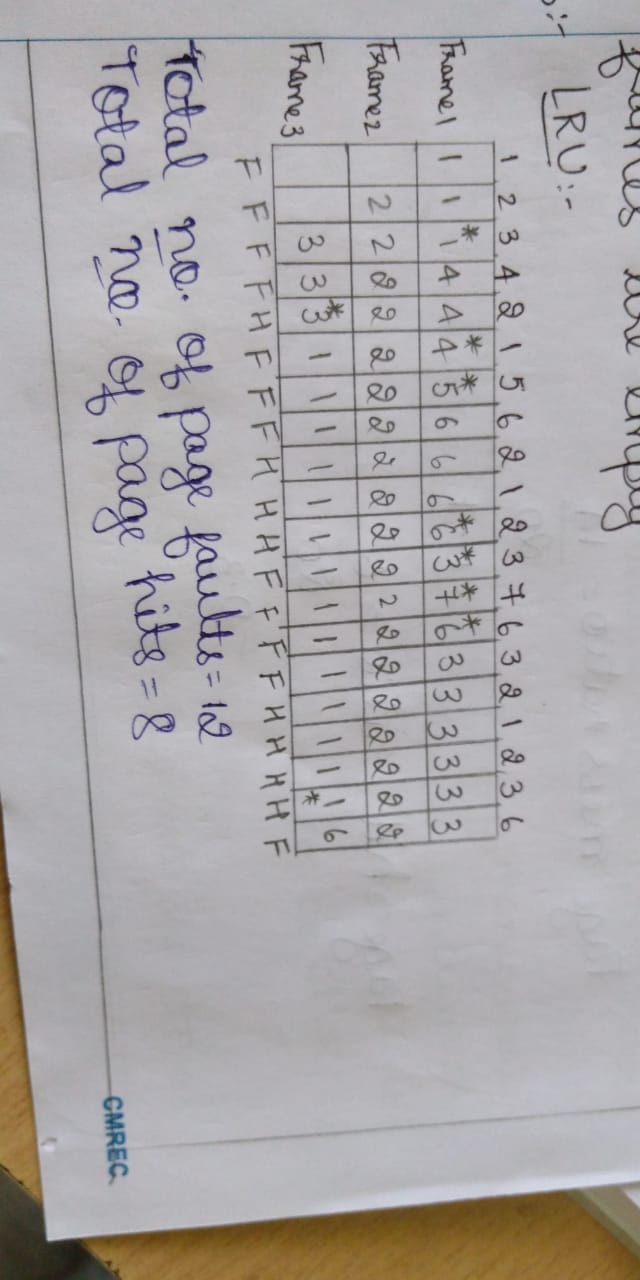 frames are empty
:- LRU:-
1 2 3 4 2 1 5 6 2 1 2 3 7 6 3 2 1 2 3 6
Frame1 1 1 *1 4 4 *4 *5 6 6 6 *6 *3 *7 *6 3 3 3 3 3 3
Frame2 2 2 2 2 2 2 2 2 2 2 2 2 2 2 2 2 2 2 2
Frame3 3 3 *3 1 1 1 1 1 1 1 1 1 1 1 1 1 1* 6
F F F F H F F F H H H F F F F H H H H F
Total no. of page faults=12
Total no. of page hits=8
CMREC